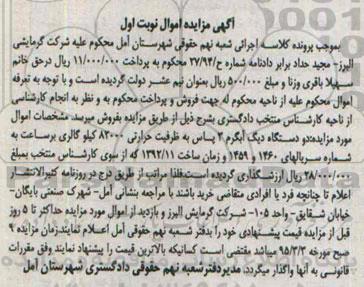 آگهی مزایده اموال نوبت اول
بموجب پرونده کلاسه اجرائی شعبه نهم حقوقی شهرستان آمل محکوم علیه شرکت گرمایشی
البرز- مجید حداد برابر دادنامه شماره ح/۳۷/۹۴ محکوم به پرداخت ۱۱/۰۰۰/۰۰۰ ریال درحق خانم
سهیلا باقری وزنا و مبلغ ۵۰۰/۰۰۰ ریال بعنوان نیم عشر دولت گردیده است و با توجه به تعرفه
اموال محکوم علیه از ناحیه محکوم له جهت فروش و پرداخت محکوم به و نظر به انجام کارشناسی
از ناحیه کارشناس منتخب دادگستری بشرح ذیل از طریق مزایده بفروش میرسد مشخصات اموال
مورد مزایده:دو دستگاه دیگ آبگرم ۳ پاس به ظرفیت حرارتی ۸۳۰۰۰ کیلو کالری برساعت به
شماره سریالهای ۱۴۶۰ و ۱۴۵۹ و زمان ساخت ۱۳۹۲/۱۱ که از سوی کارشناس منتخب بمبلغ
۲۸/۰۰۰/۰۰۰ ریال ارزشگذاری گردیده است.فلذا مراتب از طریق درج در روزنامه کثیرالانتشار
اعلام تا چنانچه فرد یا افرادی متقاضی خرید باشند با مراجعه بنشانی آمل- شهرک صنعتی بایگان-
خیابان شقایق- واحد ۱۰۵- شرکت گرمایش البرز و بازدید از اموال مورد مزایده حداکثر تا ۵ روز
قبل از مزایده قیمت پیشنهادی خود را بدفتر شعبه نهم حقوقی آمل اعلام نمایند.زمان مزایده ۹
صبح مورخه ۹۵/۳/۳ میباشد مقتضی است کسانیکه بالاترین قیمت را پیشنهاد نمایند وفق مقررات
قانونی به آنها واگذار میگردد. مدیردفترشعبه نهم حقوقی دادگستری شهرستان آمل